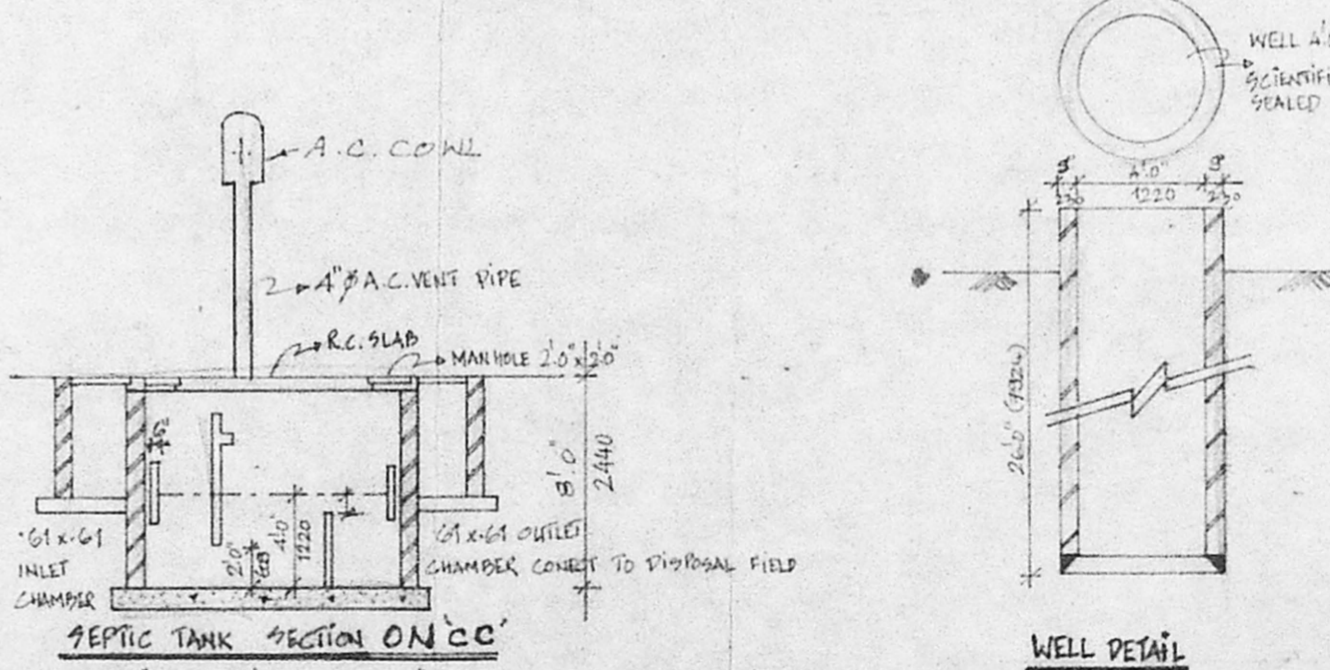 A.C. COWL
4"Ø A.C. VENT PIPE
R.C. SLAB
MANHOLE 2'.0" x 2'.0"
8'.0"
2440
4'.0"
1220
2'.0"
.61 x .61
INLET
CHAMBER
.61 x .61 OUTLET
CHAMBER CONECT TO DISPOSAL FIELD
SEPTIC TANK SECTION ON 'CC'
WELL
SEALED
9"
4'.0"
9"
230
1220
230
26'.0" (7924)
WELL DETAIL